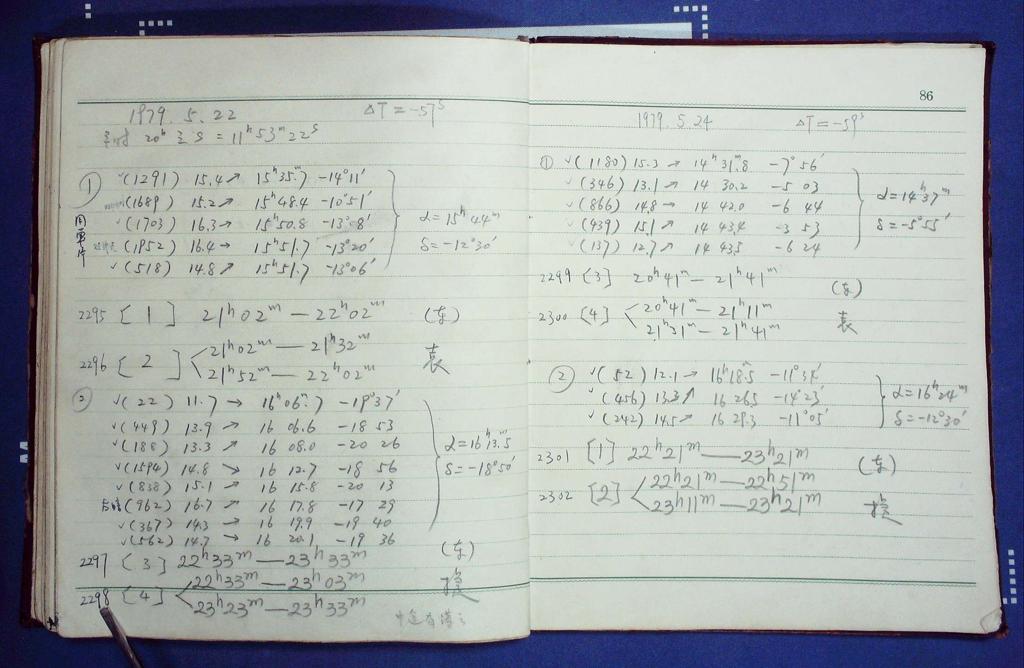 1979. 5. 22 ΔT = -57ˢ
20ʰ S = 11ʰ53ᵐ22ˢ
① √(1291) 15.4↗ 15ʰ35ᵐ.7 -14°11′
(1689) 15.2↗ 15ʰ48.4 -10°51′
√(1703) 16.3→ 15ʰ50.8 -13°08′ α=15ʰ44ᵐ
(1952) 16.4→ 15ʰ51.7 -13°20′ δ=-12°30′
√(518) 14.8↗ 15ʰ51.7 -13°06′
2295 [1] 21ʰ02ᵐ—22ʰ02ᵐ (东)
2296 [2] 21ʰ02ᵐ—21ʰ32ᵐ 袁
21ʰ52ᵐ—22ʰ02ᵐ
② √(22) 11.7→ 16ʰ06ᵐ.7 -19°37′
√(449) 13.9→ 16 06.6 -18 53
√(188) 13.3↗ 16 08.0 -20 26 α=16ʰ13ᵐ.5
√(1594) 14.8→ 16 12.7 -18 56 δ=-18°50′
√(838) 15.1→ 16 15.8 -20 13
(962) 16.7→ 16 17.8 -17 29
√(367) 14.3→ 16 19.9 -19 40
√(562) 14.7→ 16 20.1 -19 36
2297 [3] 22ʰ33ᵐ—23ʰ33ᵐ (东)
2298 [4] 22ʰ33ᵐ—23ʰ03ᵐ
23ʰ23ᵐ—23ʰ33ᵐ
86
1979. 5. 24 ΔT = -59ˢ
① √(1180) 15.3→ 14ʰ31ᵐ.8 -7°56′
√(346) 13.1↗ 14 30.2 -5 03 α=14ʰ37ᵐ
√(866) 14.8→ 14 42.0 -6 44 δ=-5°55′
√(439) 15.1→ 14 43.4 -3 53
√(137) 12.7↗ 14 43.5 -6 24
2299 [3] 20ʰ41ᵐ—21ʰ41ᵐ (东)
2300 [4] 20ʰ41ᵐ—21ʰ11ᵐ 袁
21ʰ31ᵐ—21ʰ41ᵐ
② √(52) 12.1→ 16ʰ18ᵐ.5 -11°34′
√(456) 13.3↗ 16 26.5 -14°23′ α=16ʰ24ᵐ
√(242) 14.5→ 16 29.3 -11°05′ δ=-12°30′
2301 [1] 22ʰ21ᵐ—23ʰ21ᵐ (东)
2302 [2] 22ʰ21ᵐ—22ʰ51ᵐ
23ʰ11ᵐ—23ʰ21ᵐ